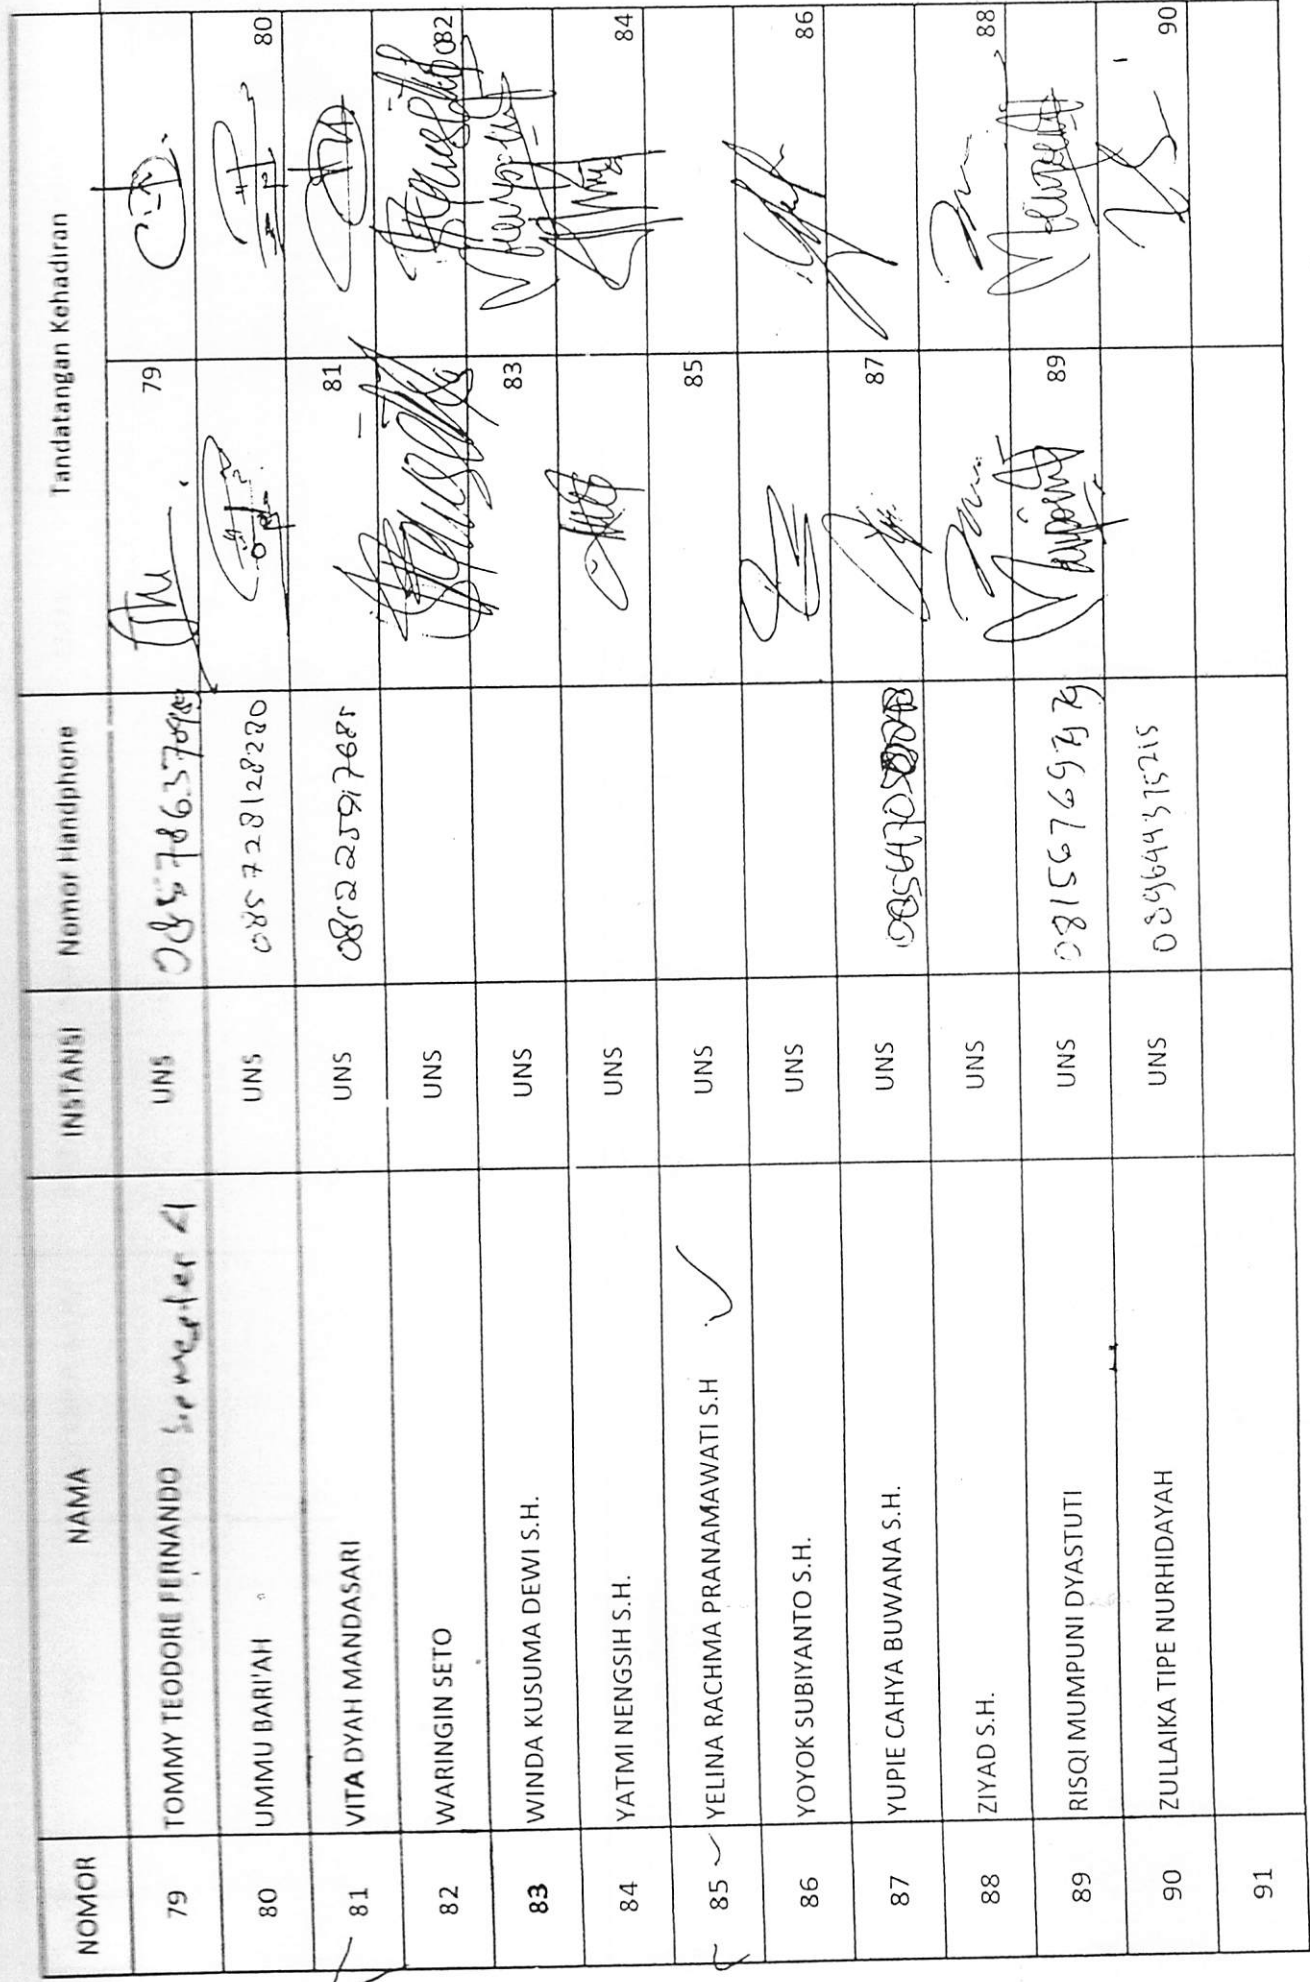 NOMOR NAMA INSTANSI Nomor Handphone Tandatangan Kehadiran
79 TOMMY TEODORE FERNANDO UNS 79
80 UMMU BARI'AH UNS 085728128280 80
81 VITA DYAH MANDASARI UNS 081225917685 81
82 WARINGIN SETO UNS 82
83 WINDA KUSUMA DEWI S.H. UNS 83
84 YATMI NENGSIH S.H. UNS 84
85 YELINA RACHMA PRANAMAWATI S.H UNS 85
86 YOYOK SUBIYANTO S.H. UNS 86
87 YUPIE CAHYA BUWANA S.H. UNS 87
88 ZIYAD S.H. UNS 88
89 RISQI MUMPUNI DYASTUTI UNS 89
90 ZULLAIKA TIPE NURHIDAYAH UNS 089644375215 90
91